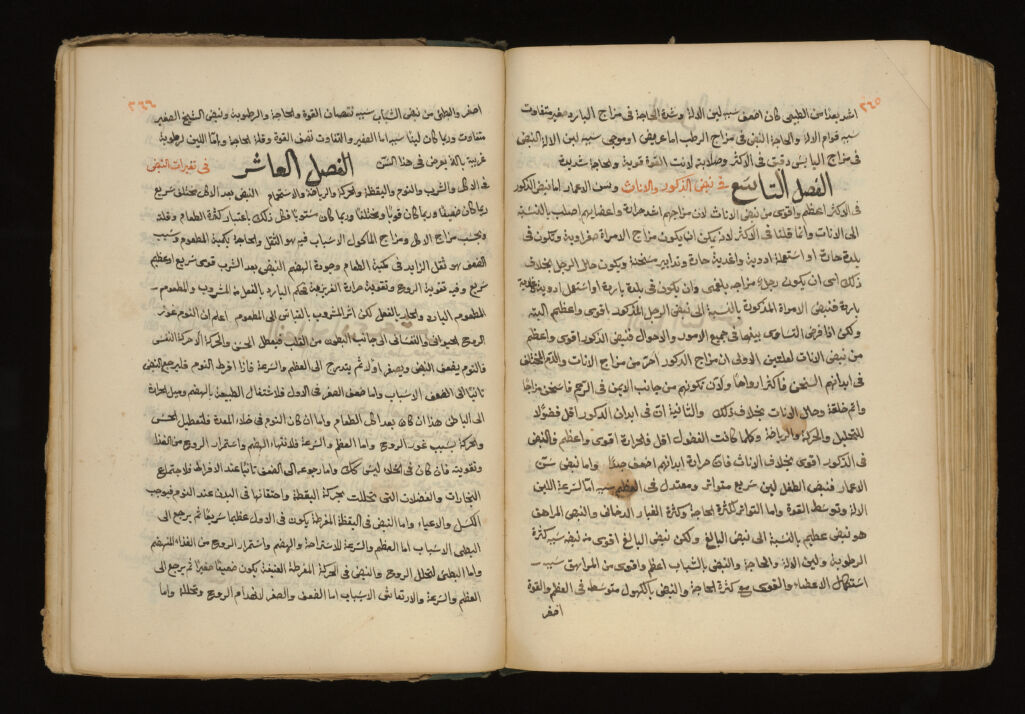 ٢٤٥
اشد بعدا من الطبيعى كان اضعف سببه لين الالة وشدة الحاجة فى مزاج البارد صغير متفاوت
سببه قوام الالة والحاجة النبض فى مزاج الرطب اما عريض او موجى سببه لين الالة النبض
فى مزاج اليابس دقيق فى الاكثر وصلابة لو نت القوة قوية والحاجة شديدة
الفصل التاسع فى نبض الذكور والاناث وسن الاعمار اما نبض الذكور
فى الاكثر اعظم واقوى من نبض الاناث لان مزاجهم اشد حرارة واعضايهم اصلب بالنسبة
الى الاناث وانما قلنا فى الاكثر لانه يمكن ان يكون مزاج الامراة صفراوية وتكون فى
بلدة حارة او استعملة ادوية واغدية حارة وتدابير مسخنة ويكون حال الرجل بخلاف
ذلك اعنى ان يكون رجلا مزاجه بلغمى وان يكون فى بلدة باردة او استعمل ادوية واغدية
باردة فنبض الامراة المذكورة بالنسبة الى نبض الرجل المذكور اقوى واعظم البتة
ولكن اذا فرض التساوى بينهما فى جميع الرسوم والاحوال فنبض الذكور اقوى واعظم
من نبض الناث لعلتين الاولى ان مزاج الذكور احر من مزاج الاناث والدم المختلف
فى ابدانهم اسخن فاكثر ارواحا ولان تكونهم من جانب الايمن فى الرحم فاسخن مزاجا
واتم خلقة وحال الاناث بخلاف ذلك والثانية ان فى ابدان الذكور اقل فضولا
للتحليل والحركة والرياضة وكلما كانت الفضول اقل فالحرارة اقوى واعظم فالنبض
فى الذكور اقوى بخلاف الاناث فان حرارة ابدانهم اضعف جدا واما نبض سن
الاعمار فنبض الطفل لين سريع متواتر ومعتدل فى العظم سببه اما السرعة اللين
الالة وتوسط القوة واما التواتر لكثرة الحاجة وكثرة الغبار الدخاف والنبض المراهق
هو نبض عظيم بالنسبة الى نبض البالغ ولكن نبض البالغ اقوى من نبضه سببه كثرة
الرطوبة ولين الالة والحاجة والنبض بالشباب اعظم واقوى من المراهق سببه
استكمال الاعضاء والقوى مع كثرة الحاجة والنبض بالكهول متوسطه فى العظم والقوة
اصغر
٢٤٦
اصغر والبطئ من نبض الشباب سببه نقصان القوة والحاجة والرطوبة ونبض الشيخ الصغير
متفاوت وربما كان لينا سببه اما الصغير والتفاوت ضعف القوة وقلة الحاجة واما اللين لرطوبة
غريبة بالة يعرض فى هذا السن الفصل العاشر فى تغيرات النبض
فى الاكل والشرب والنوم واليقظة والحركة والرياضة والاستحمام النبض بعد الاكل مختلف سريع
ربما كان ضعيفا وربما كان قويا ومختلفا وربما كان مستويا فكل ذلك باعتبار كثرة الطعام وقلته
وبحسب مزاج الاكل ومزاج الماكول الاسباب فيه هو الثقل والحاجة بكمية المطعوم وسبب
الضعف هو ثقل الزايد فى كمية الطعام وجودة الهضم النبض بعد الشرب قوى سريع او عظيم
سريع وفيه تقوية الروح وتقوية حرارة الغريزية فحكم البارد بالفعل من المشروب والمطعوم
المطعوم البارد والحار بالفعل لكن اثر المشروب بالقياس الى المطعوم اعلم ان النوم غور
الروح الحيوانى والنفسانى الى جانب البطون من القلب فيبطل الحس والحركة الا حركة النفس
فالنوم يضعف النبض ويصغر اولا ثم يتدرج الى العظم والسرعة فاذا افرط النوم فيرجع النبض
ثانيا الى الضعف الاسباب واما ضعف الصغر فى الاول فلاشتغال الطبيعة بالهضم وميل الحرارة
الى الباطن هذا ان كان بعد اكل الطعام واما ان كان النوم فى خلاء المعدة فلتعطيل الحس
والحركة بسبب غور الروح واما العظم والسرعة فلانتهاء الهضم واستمرار الروح من الغذاء
وتقويته فان كان فى الخلاء ليس كك واما رجوعه الى الضعف ثانيا عند الافراط فلاجتماع
البخارات والفضلات التى تحللت بحركة اليقظة واحتقانها فى البدن عند النوم فيوجب
الكسل والاعياء واما النبض فى اليقظة المفرطة يكون فى الاول عظيما سريعا ثم يرجع الى
البطئ الاسباب اما العظم والسرعة للاستراحة والهضم واستمرار الروح من الغذاء المنهضم
واما البطئ لتحلل الروح والنبض فى الحركة المفرطة العنيفة يكون ضعيفا صغيرا ثم يرجع الى
العظم والسرعة والارتعاش الاسباب اما الضعف والصغر لانهدام الروح وتحلله واما